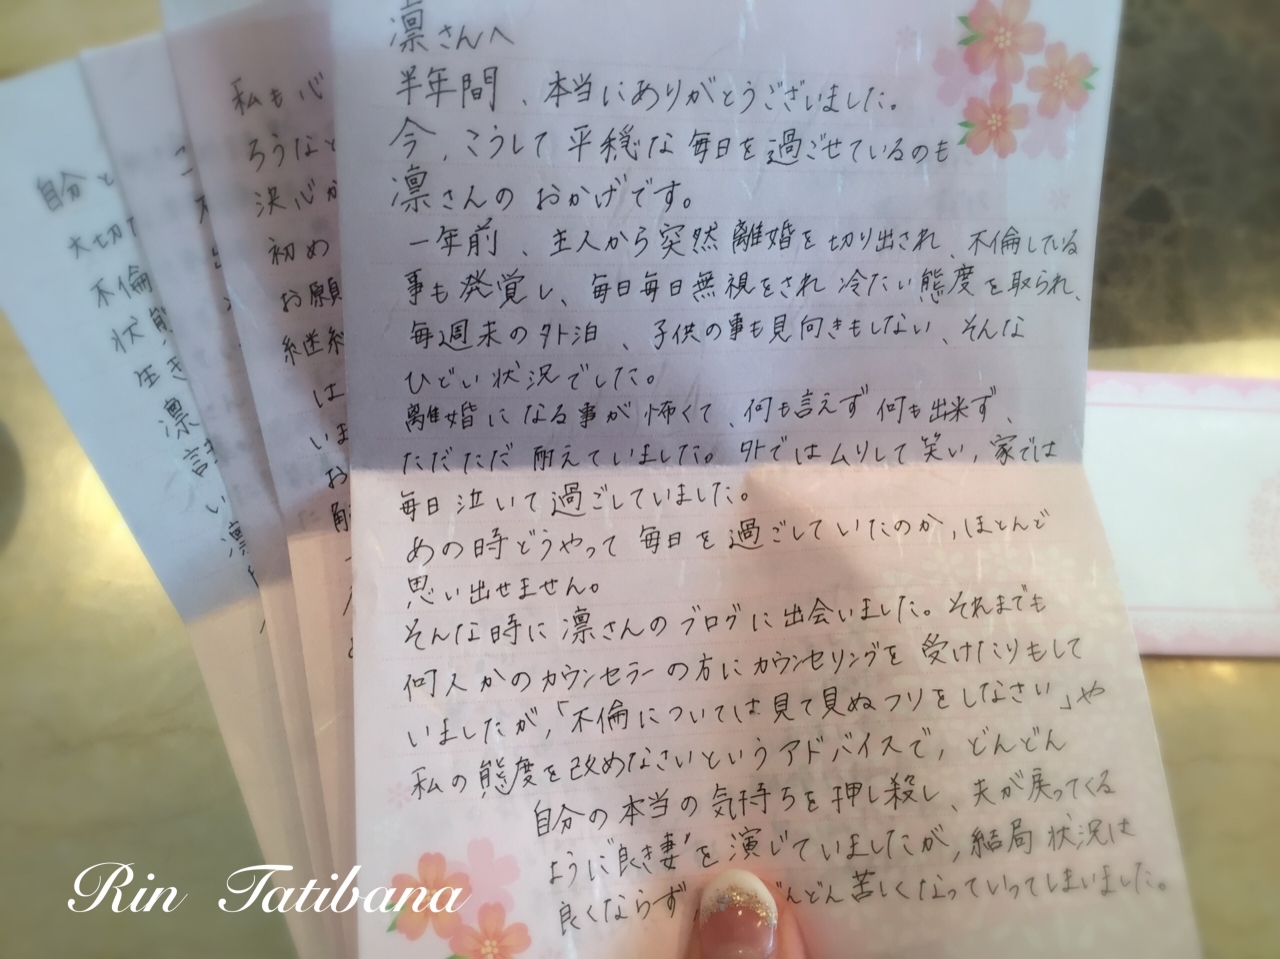 凛さんへ
半年間、本当にありがとうございました。
今、こうして平穏な毎日を過ごせているのも
凛さんのおかげです。
一年前、主人から突然離婚を切り出され、不倫している
事も発覚し、毎日毎日無視をされ冷たい態度を取られ、
毎週末の外泊、子供の事も見向きもしない、そんな
ひどい状況でした。
離婚になる事が怖くて、何も言えず何も出来ず、
ただただ耐えていました。外ではムリして笑い、家では
毎日泣いて過ごしていました。
あの時どうやって毎日を過ごしていたのか、ほとんど
思い出せません。
そんな時に凛さんのブログに出会いました。それまでも
何人かのカウンセラーの方にカウンセリングを受けたりもして
いましたが、「不倫については見て見ぬフリをしなさい」や
私の態度を改めなさいというアドバイスで、どんどん
自分の本当の気持ちを押し殺し、夫が戻ってくる
ように"良き妻"を演じていましたが、結局状況は
良くならず、んどん苦しくなっていってしまいました。
私も心
ろうなと
決心か
初め
お願
継続
は
いま
お
自分と
大切
不倫
状態
生き
凛
い
凛
Rin Tatibana